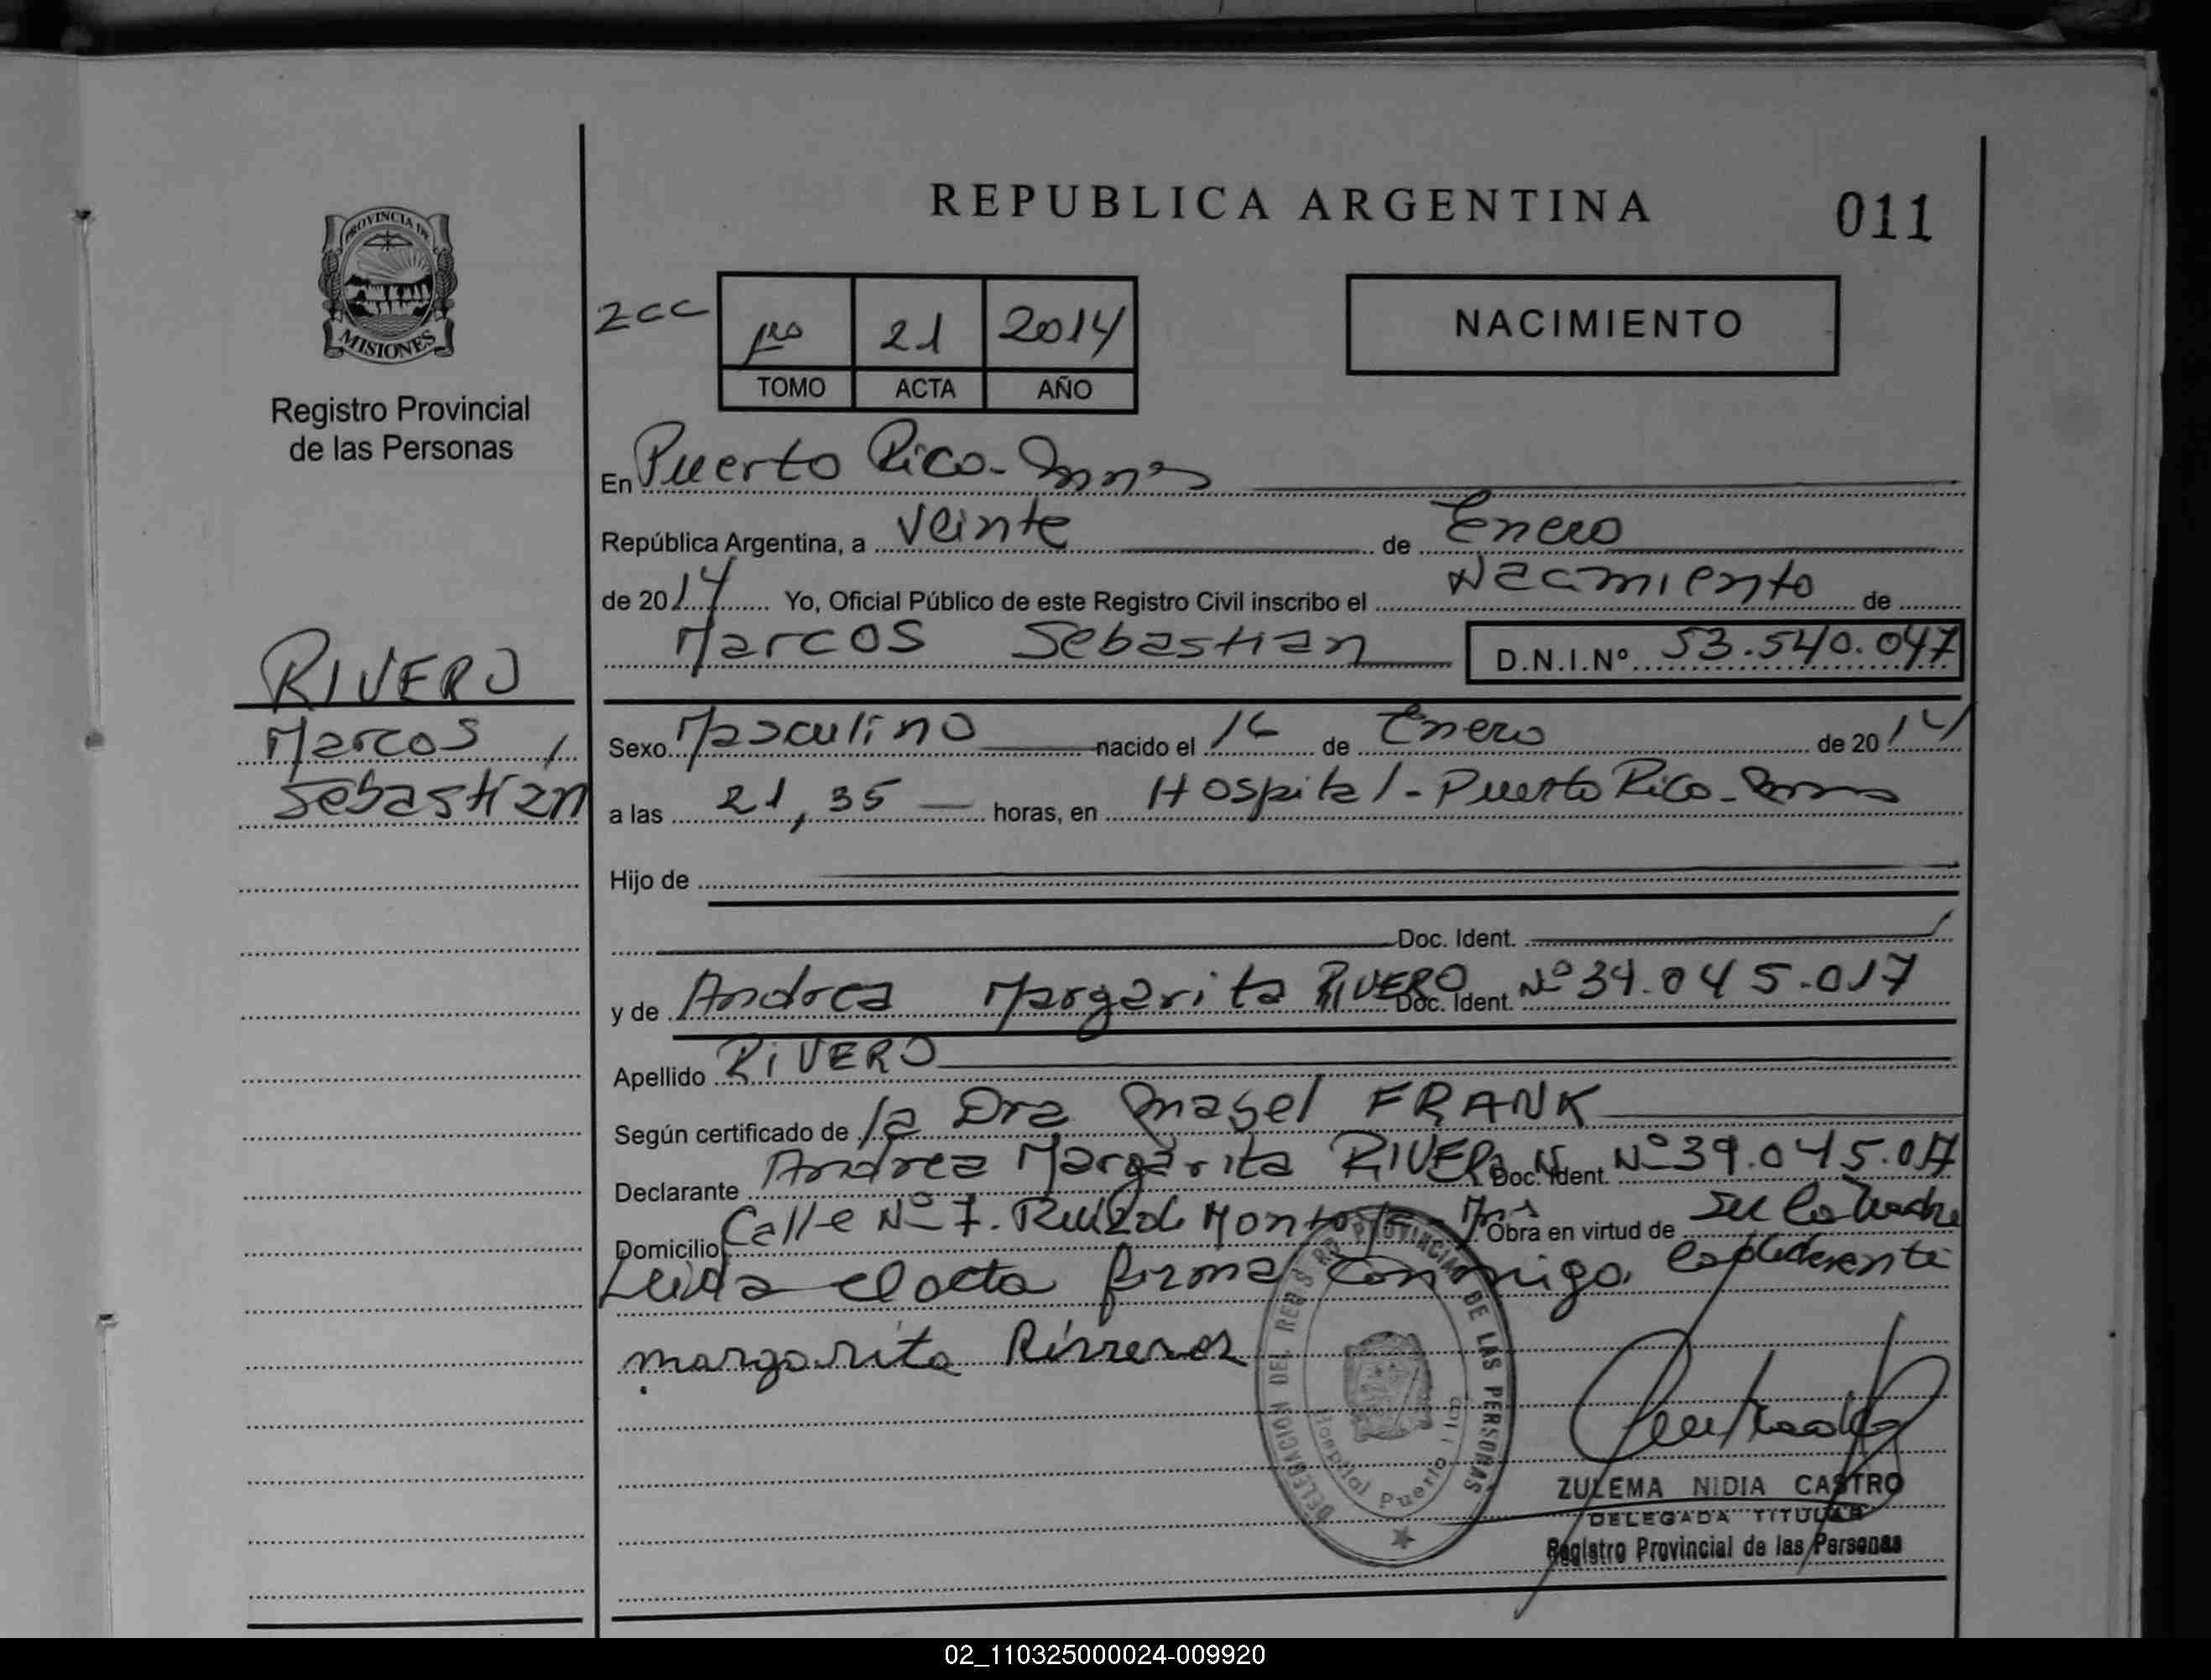 REPUBLICA ARGENTINA
011
PROVINCIA DE
MISIONES
Registro Provincial
de las Personas
zcc
1ro 21 2014
TOMO ACTA AÑO
NACIMIENTO
En Puerto Rico - Mnes
República Argentina, a veinte de Enero
de 2014 Yo, Oficial Público de este Registro Civil inscribo el Nacimiento de
Marcos Sebastian D.N.I.Nº 53.540.047
RIVERO
Marcos
Sebastián
Sexo Masculino nacido el 16 de Enero de 2014
a las 21,35 horas, en Hospital - Puerto Rico - Mnes
Hijo de
Doc. Ident.
y de Andrea Margarita RIVERO Doc. Ident. Nº 39.045.017
Apellido RIVERO
Según certificado de la Dra Mabel FRANK
Declarante Andrea Margarita RIVERO Doc. Ident. Nº 39.045.017
Domicilio Calle Nº 7. Ruiz de Montoya - Mnes Obra en virtud de ser la Madre
Leida el acta firma conmigo la declarante
margarita
DELEGACION DEL REGIS. RE. PROVINCIAL DE LAS PERSONAS
Hospital Puerto Rico
ZULEMA NIDIA CASTRO
DELEGADA TITULAR
Registro Provincial de las Personas
02_110325000024-009920